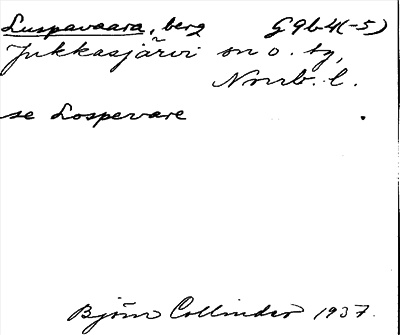 Luspavaara, berg G9b4(-5)
Jukkasjärvi sn o. tg,
Norrb. l.
se Lospevare
Björn Collinder 1937.